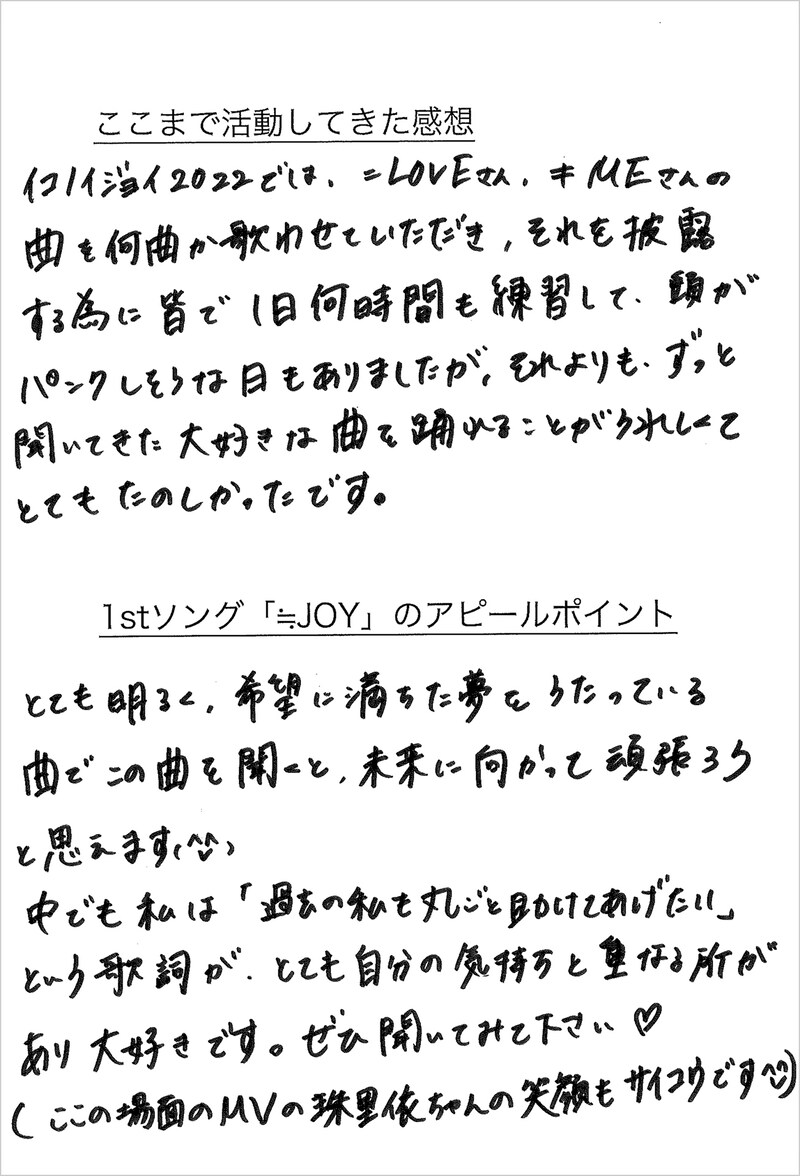 ここまで活動してきた感想
イコノイジョイ2022では、=LOVEさん、≠MEさんの
曲を何曲か歌わせていただき、それを披露
する為に皆で1日何時間も練習して、頭が
パンクしそうな日もありましたが、それよりも、ずっと
聞いてきた大好きな曲を踊れることがうれしくて
とてもたのしかったです。
1stソング「≒JOY」のアピールポイント
とても明るく、希望に満ちた夢をうたっている
曲でこの曲を聞くと、未来に向かって頑張ろう
と思えます(^^)
中でも私は「過去の私も丸ごと助けてあげたい」
という歌詞が、とても自分の気持ちと重なる所が
あり大好きです。ぜひ聞いてみて下さい♡
(ここの場面のMVの珠里依ちゃんの笑顔もサイコウです^^)